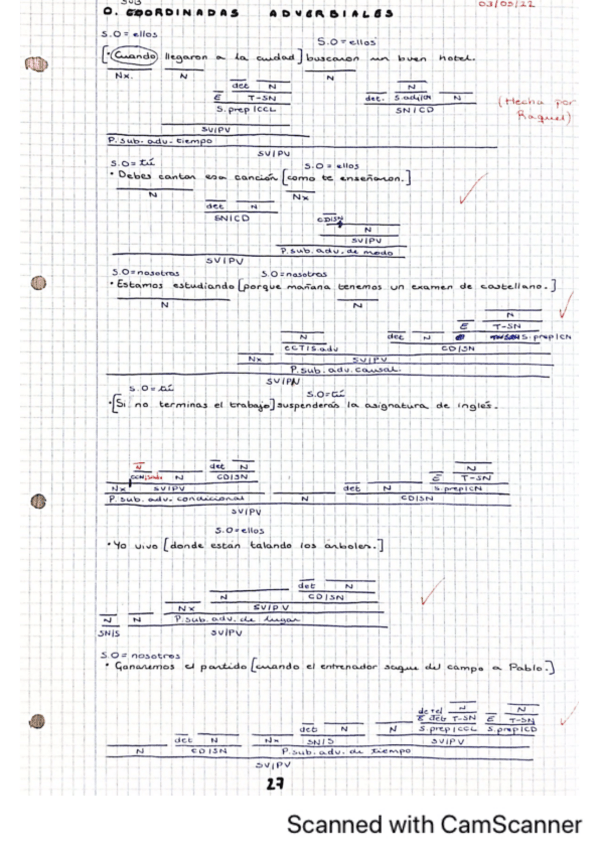 SUB
03/05/22
O. COORDINADAS ADVERBIALES
S.O = ellos S.O = ellos
[· Cuando llegaron a la ciudad] buscaron un buen hotel.
Nx. N N
det N N
E T-SN det. S.adj/CN N
S.prep/CCL SN/CD
(Hecha por Raquel)
SV/PV
P. sub. adv. tiempo
SV/PV
S.O = tú S.O = ellos
· Debes cantar esa canción [como te enseñaron.]
N Nx
det N CD/SN
SN/CD N
SV/PV
P. sub. adv. de modo
SV/PV
S.O = nosotros S.O = nosotros
· Estamos estudiando [porque mañana tenemos un examen de castellano.]
N N
N
N E T-SN
CCT/S.adv det N S.prep/CN
CD/SN
Nx SV/PV
P. sub. adv. causal.
SV/PV
S.O = tú S.O = tú
· [Si no terminas el trabajo] suspenderás la asignatura de inglés.
N det N N
N CD/SN E T-SN
Nx SV/PV det N S.prep/CN
P. sub. adv. condicional N CD/SN
SV/PV
S.O = ellos
· Yo vivo [donde están talando los árboles.]
det N
N CD/SN
Nx SV/PV
N N P. sub. adv. de lugar
SN/S SV/PV
S.O = nosotros
· Ganaremos el partido [cuando el entrenador saque del campo a Pablo.]
N N
E det T-SN E T-SN
det N N S.prep/CCL S.prep/CD
det N Nx SN/S SV/PV
N CD/SN P. sub. adv. de tiempo
SV/PV
27
Scanned with CamScanner